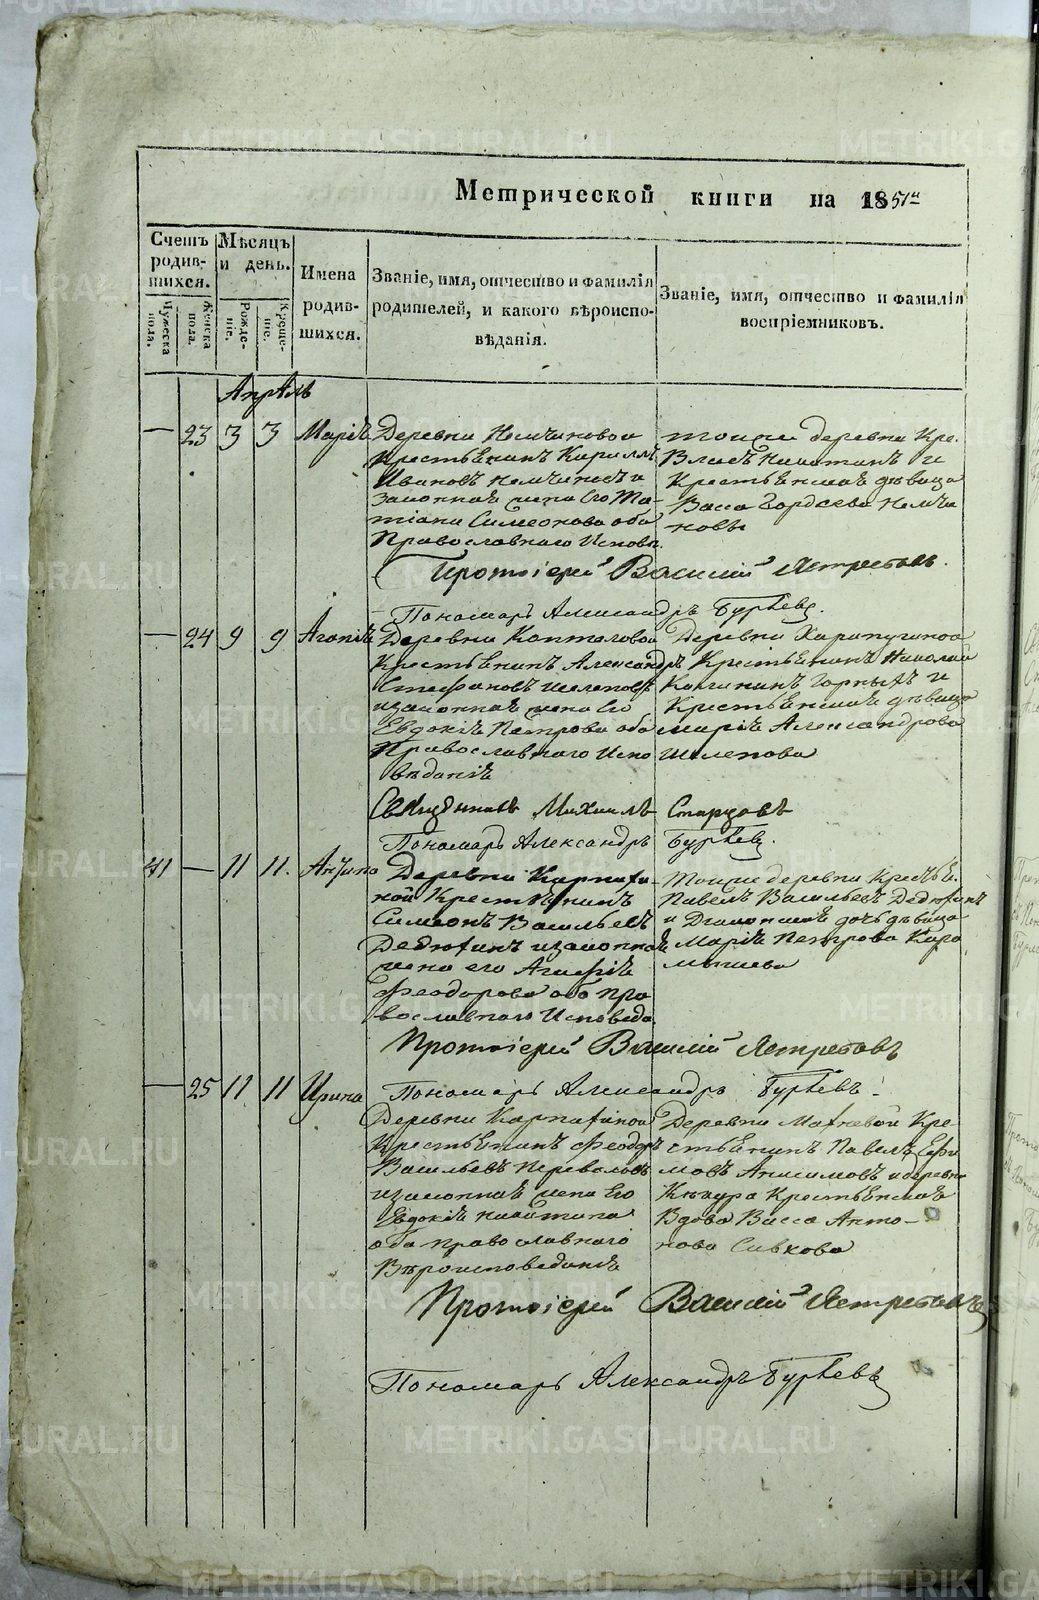 Метрической книги на 1851й
Счетъ родив-шихся.
Мѣсяцъ и день.
Имена родив-шихся.
Званіе, имя, отчество и фамилія родителей, и какого вѣроиспо-вѣданія.
Званіе, имя, отчество и фамилія воспріемниковъ.
Мужеска пола.
Женска пола.
Рожде-ніе.
Креще-ніе.
Апрѣль
— 23 3 3 Марія
Деревни
Крестьянинъ Кириллъ
Ивановъ
законная жена его Та-
тіана Симеонова оба
Православнаго Исповѣ.
тойже деревни Кре.
Власъ Никитинъ и
Крестьянская дѣвица
Васса Гордеева
Протоіерей Василій Ястребовъ.
Пономарь Александръ Бурѣевъ.
— 24 9 9 Агапія
Деревни Копталовой
Крестьянинъ Александръ
Стефановъ Шелеповъ
и законная жена его
Евдокія Петрова оба
Православнаго Испо
вѣданія
Деревни
Крестьянинъ Николай
Горныхъ и
Крестьянская дѣвица
Марія Александрова
Шелепова
Священникъ Михаилъ Старцовъ
Пономарь Александръ Бурѣевъ.
41 — 11 11. Антипа
Деревни
Крестьянинъ
Симеонъ Васильевъ
Дедюхинъ и законная
жена его Агафія
Феодорова оба пра
вославнаго Исповеда.
Тойже деревни Крестья.
Павелъ Васильевъ Дедюхинъ
и дочь дѣвица
Марія Петрова Кара
мышева
Протоіерей Василій Ястребовъ
— 25 11 11 Ирина
Пономарь Александръ Бурѣевъ.
Деревни
Крестьянинъ Феодоръ
Васильевъ Переваловъ
и законная жена Его
Евдокія Никитина
оба православнаго
Вѣроисповеданія
Деревни Кре
стьянинъ Павелъ Ефи
мовъ Анисимовъ и деревни
Крестьянская
Вдова Васса Анто-
нова Сивкова
Протоіерей Василій Ястребовъ
Пономарь Александръ Бурѣевъ
METRIKI.GASO-URAL.RU